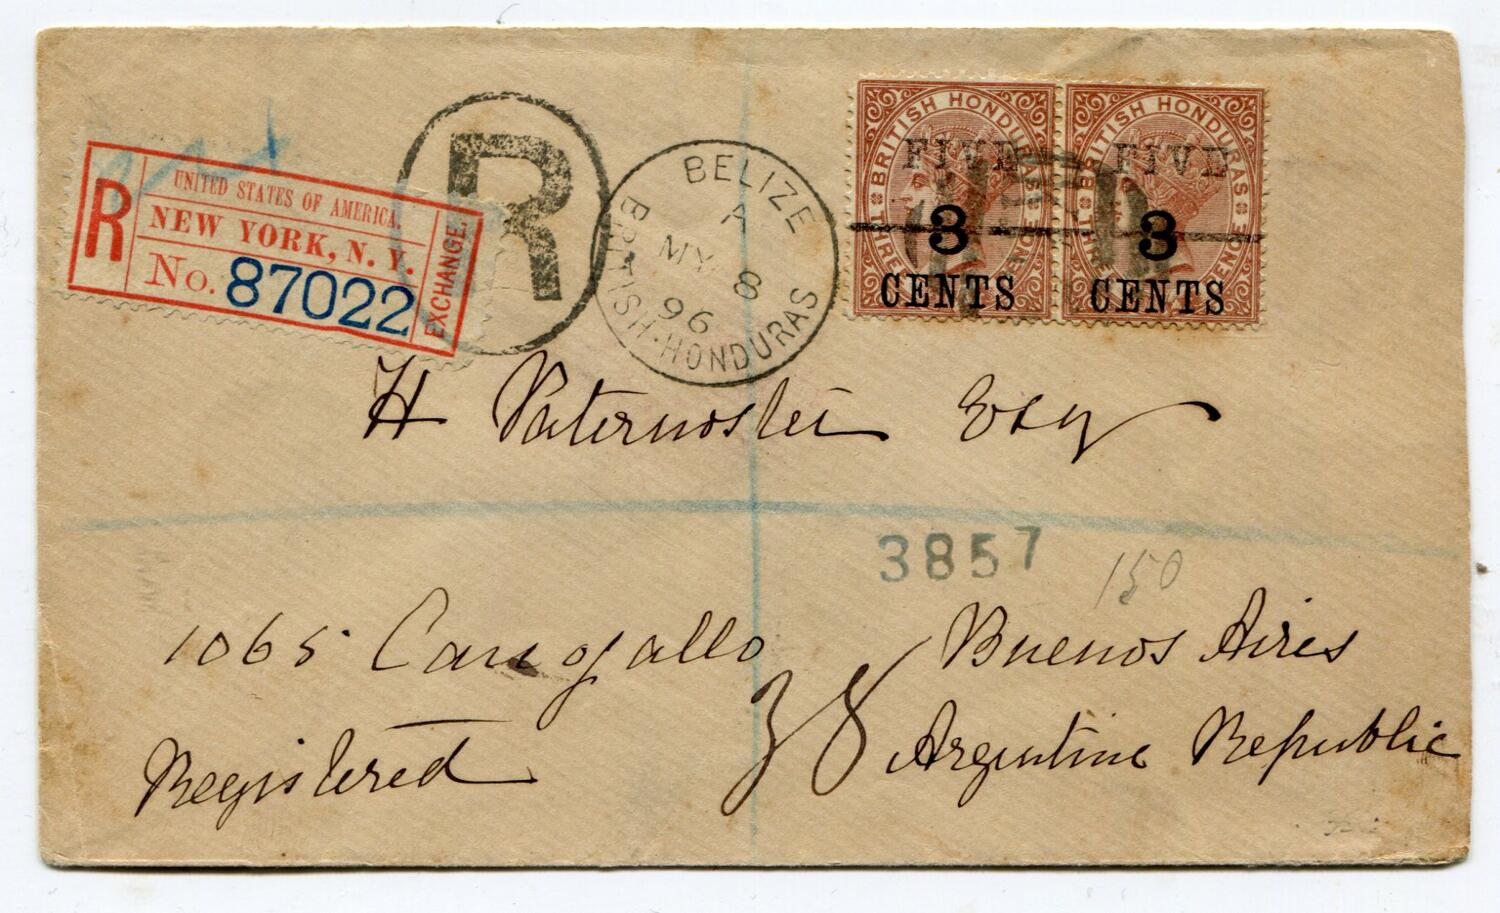 R
UNITED STATES OF AMERICA.
NEW YORK, N. Y.
No. 87022
EXCHANGE.
R
BELIZE
A
MY 8
96
BRITISH·HONDURAS
BRITISH HONDURAS
FIVE
3
CENTS
THREE PENCE
BRITISH HONDURAS
FIVE
3
CENTS
THREE PENCE
H Paternoster Esq
3857
150
1065 Cangallo
Buenos Aires
38
Registered
Argentine Republic